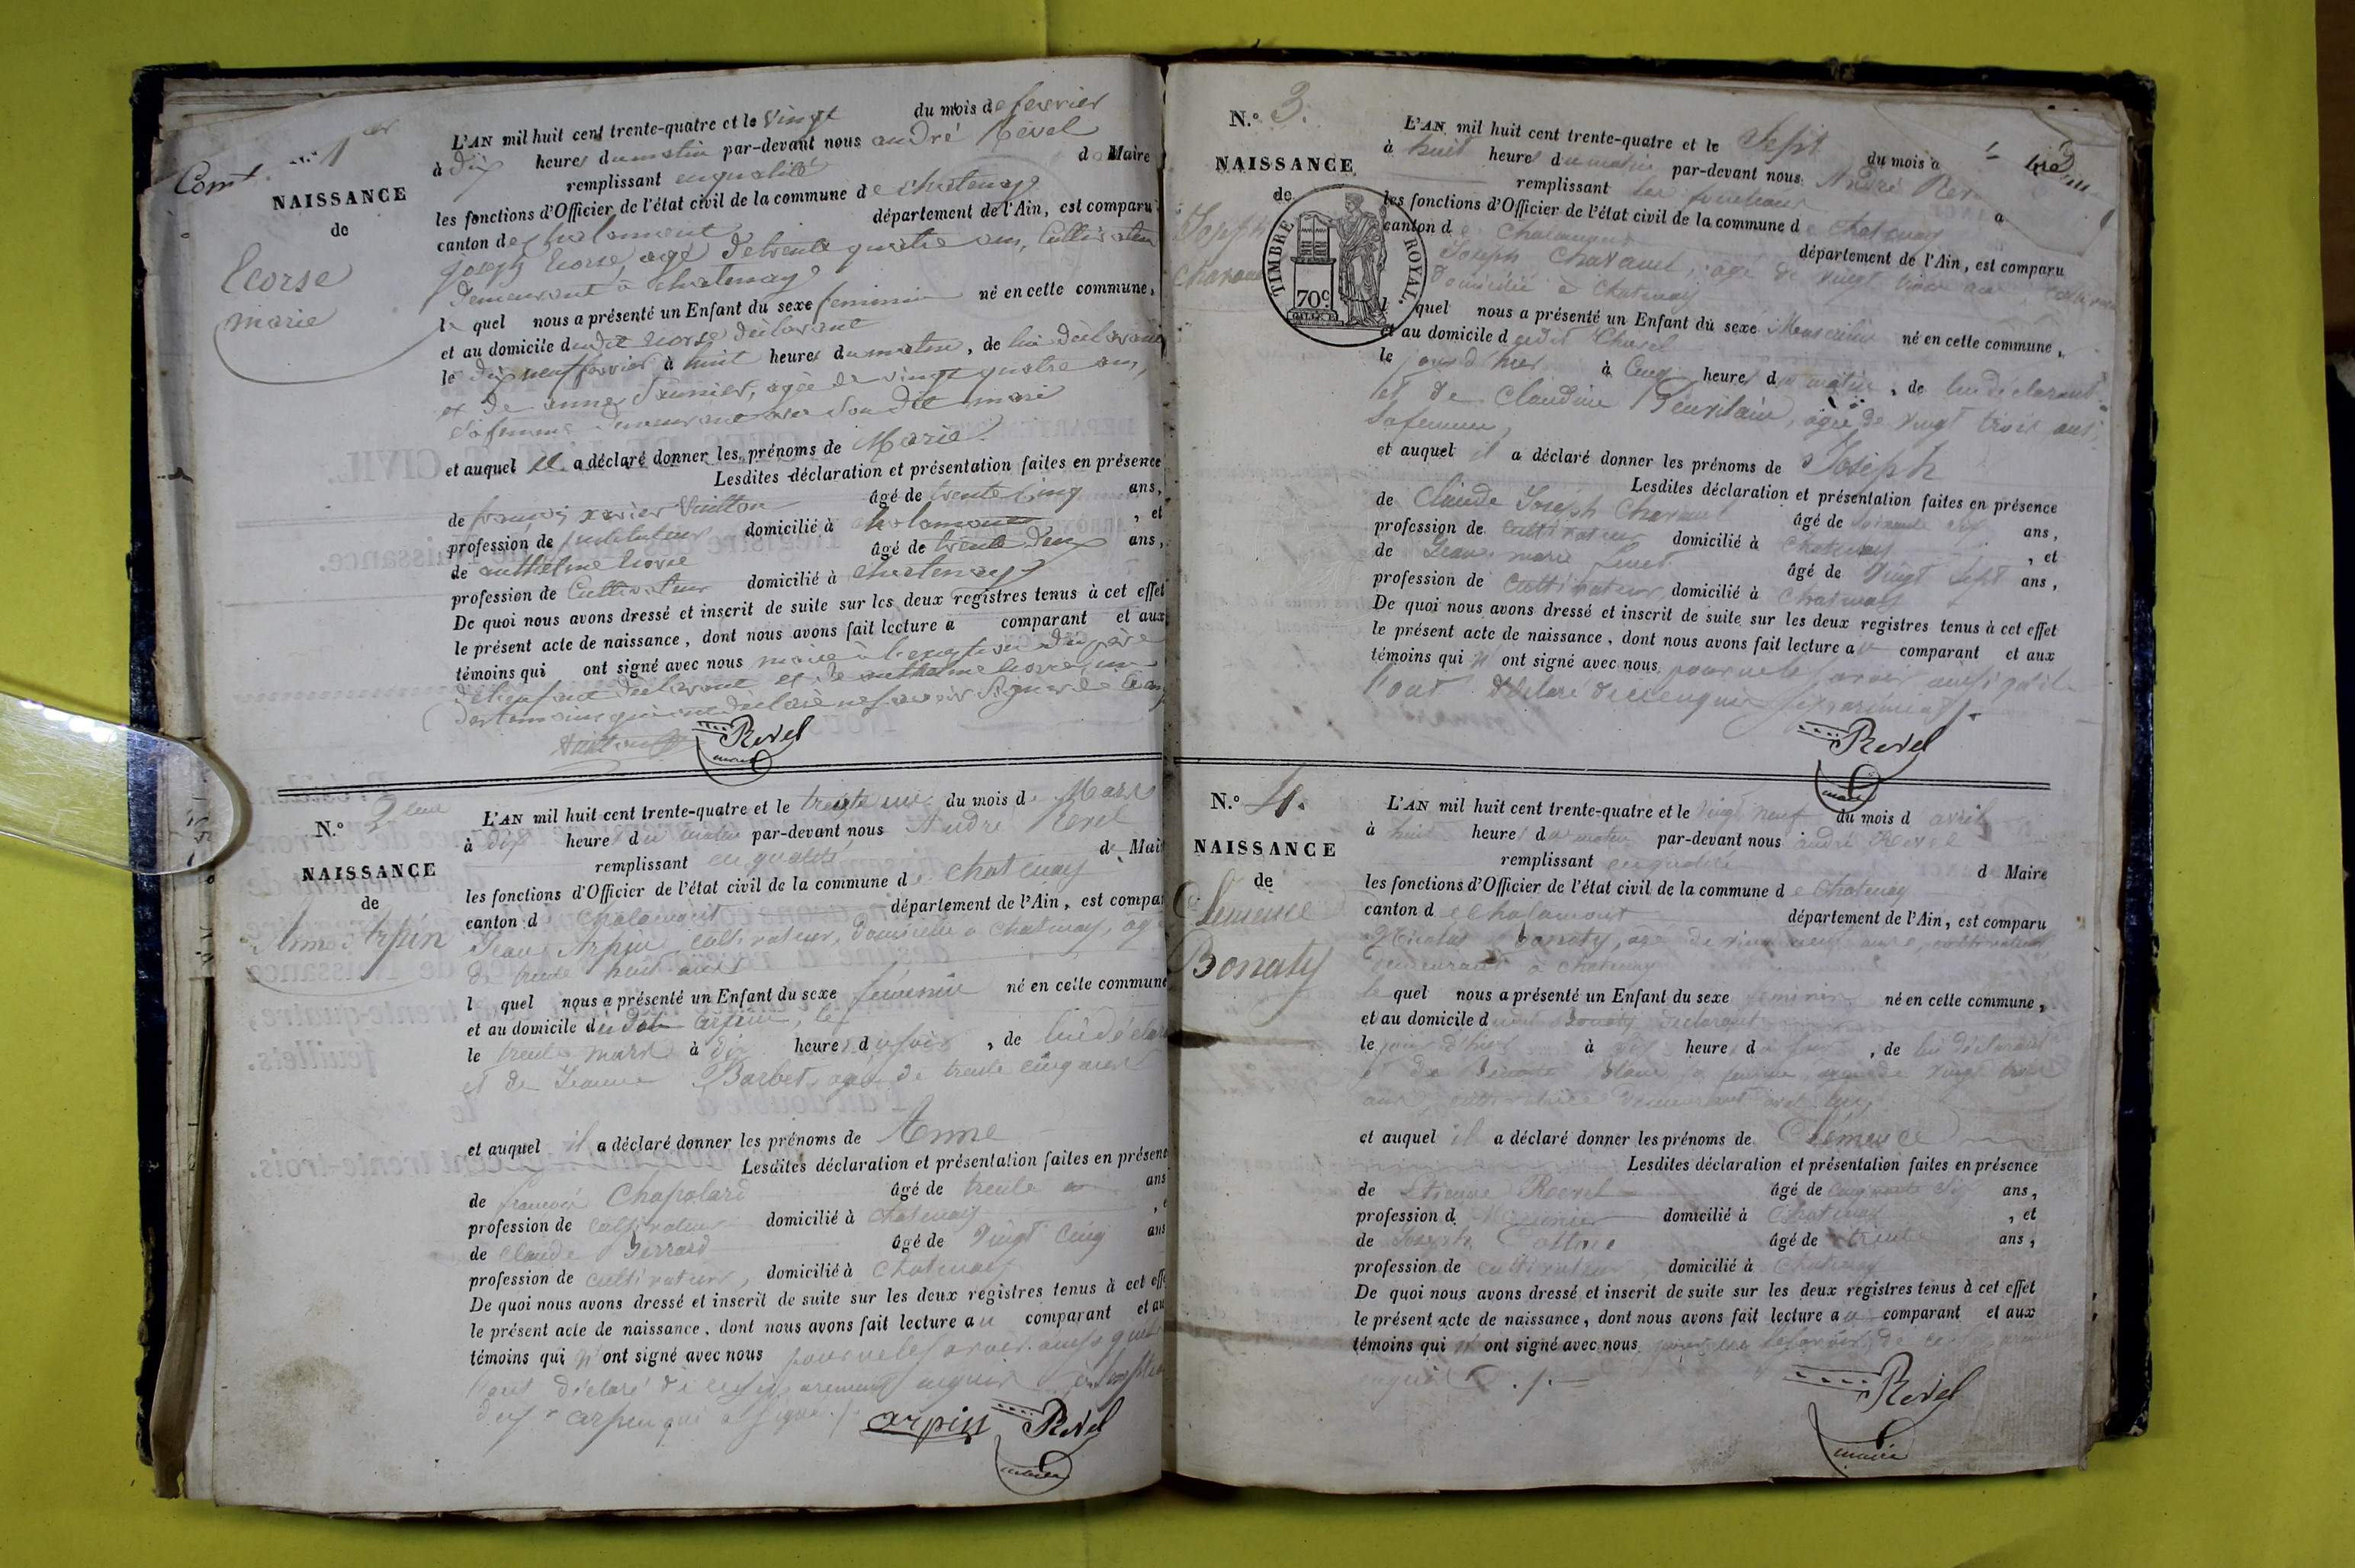 Com.t
N.° 1er
NAISSANCE
de
Ecorse
marie
L'AN mil huit cent trente-quatre et le vingt du mois de fevrier
à dix heures du matin par-devant nous andré Revel
remplissant en qualité d Maire
les fonctions d'Officier de l'état civil de la commune de chatenay
canton de chalamont département de l'Ain, est comparu
joseph Ecorse, agé de trente quatre ans, Cultivateur
demeurant à chatenay
le quel nous a présenté un Enfant du sexe feminin né en cette commune,
et au domicile dudit Ecorse déclarant
le dix neuf fevrier à huit heures du matin, de lui déclarant
et de anne, agée de vingt quatre ans,
sa femme demeurant avec son dit mari
et auquel il a déclaré donner les prénoms de Marie
Lesdites déclaration et présentation faites en présence
de françois xavier Vuitton âgé de trente cinq ans,
profession de instituteur domicilié à chalamont, et
de anthelme Ecorse âgé de trente deux ans,
profession de Cultivateur domicilié à chatenay
De quoi nous avons dressé et inscrit de suite sur les deux registres tenus à cet effet
le présent acte de naissance, dont nous avons fait lecture a comparant et aux
témoins qui ont signé avec nous maire à l'exception du père
de l'enfant déclarant et de anthelme Ecorse, un
des temoins qui ont déclaré ne savoir signer de ce
Vuitton Revel
maire
N.° 2eme
NAISSANCE
de
Anne Arpin
L'AN mil huit cent trente-quatre et le trente un du mois de Mars
à dix heures du matin par-devant nous André Revel
remplissant en qualité de Mair
les fonctions d'Officier de l'état civil de la commune de chatenay
canton de Chalamont département de l'Ain, est compar
Jean Arpin cultivateur, domicilié à Chatenay, agé
de trente huit ans
l quel nous a présenté un Enfant du sexe féminin né en cette commune
et au domicile du dit arpin, le
le trente mars à dix heures du soir, de lui déclarant
et de Jeanne Barbet, agée de trente cinq ans
et auquel il a déclaré donner les prénoms de Anne
Lesdites déclaration et présentation faites en présenc
de françois Chapolard âgé de trente ans
profession de cultivateur domicilié à chatenay, e
de Claude Perrard âgé de vingt cinq ans
profession de cultivateur, domicilié à Chatenay
De quoi nous avons dressé et inscrit de suite sur les deux registres tenus à cet effe
le présent acte de naissance, dont nous avons fait lecture au comparant et au
témoins qui n' ont signé avec nous pour ne le savoir ainsi qu'ils
l'ont déclaré de ce requis
arpin qui a signé ./.
arpin Revel
maire
N.° 3.
NAISSANCE
de
Joseph
TIMBRE ROYAL.
70c
L'AN mil huit cent trente-quatre et le Sept du mois
à huit heures du matin par-devant nous André Rev
remplissant les fonctions
les fonctions d'Officier de l'état civil de la commune de Chatenay
canton de Chalamont département de l'Ain, est comparu
Joseph, agé de vingt ans
domicilié à Chatenay
l quel nous a présenté un Enfant du sexe Masculin né en cette commune,
et au domicile dudit
le jour d'hier à Cinq heures du matin, de lui déclarant
et de Claudine, agée de vingt trois ans,
sa femme,
et auquel il a déclaré donner les prénoms de Joseph
Lesdites déclaration et présentation faites en présence
de Claude Joseph âgé de soixante six ans,
profession de cultivateur domicilié à Chatenay, et
de Jean marie âgé de vingt sept ans,
profession de Cultivateur, domicilié à Chatenay
De quoi nous avons dressé et inscrit de suite sur les deux registres tenus à cet effet
le présent acte de naissance, dont nous avons fait lecture au comparant et aux
témoins qui n' ont signé avec nous pour ne le savoir ainsi qu'ils
l'ont déclaré de ce enquis séparément ./.
Revel
maire
N.° 4.
NAISSANCE
de
Clemence
Bonnaty
L'AN mil huit cent trente-quatre et le vingt neuf du mois d avril
à huit heures du matin par-devant nous andré Revel
remplissant en qualité d Maire
les fonctions d'Officier de l'état civil de la commune de Chatenay
canton de Chalamont département de l'Ain, est comparu
Nicolas Bonnaty, agé de vingt neuf ans, cultivateur
demeurant à chatenay
le quel nous a présenté un Enfant du sexe feminin né en cette commune,
et au domicile dudit Bonnaty déclarant
le jour d'hier à heure d, de lui déclarant
et de sa femme, agée de vingt trois
ans, cultivatrice demeurant avec lui
et auquel il a déclaré donner les prénoms de Clémence
Lesdites déclaration et présentation faites en présence
de Etienne Revel âgé de cinquante six ans,
profession d domicilié à Chatenay, et
de Joseph âgé de trente ans,
profession de cultivateur domicilié à Chatenay
De quoi nous avons dressé et inscrit de suite sur les deux registres tenus à cet effet
le présent acte de naissance, dont nous avons fait lecture au comparant et aux
témoins qui n' ont signé avec nous pour ne le savoir de ce
requis ./.
Revel
maire